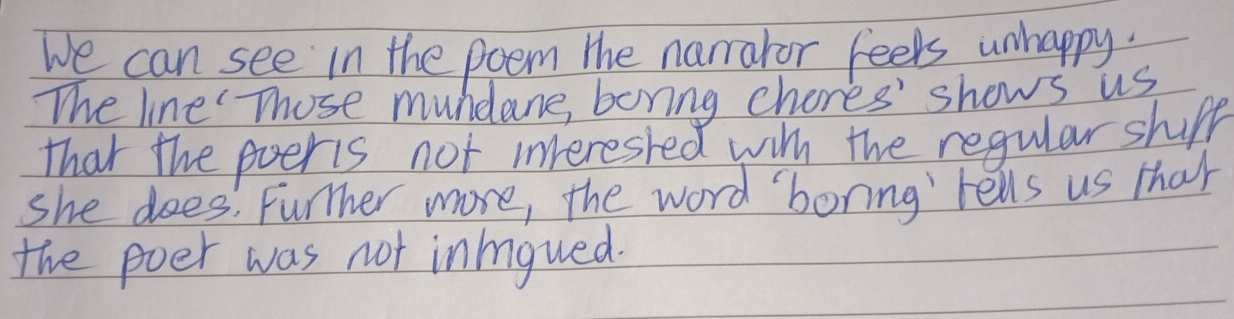 We can see in the poem the narrator feels unhappy.
The line 'Those mundane, boring chores' shows us
that the poet is not interested with the regular shift
she does. Further more, the word 'boring' tells us that
the poet was not intrigued.